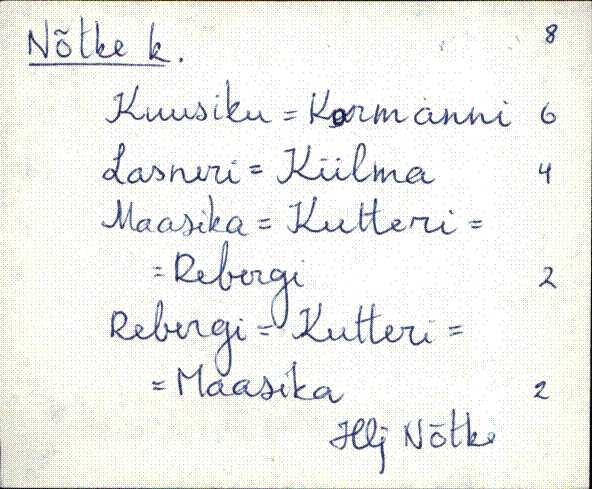 Nõtke k. 8
Kuusiku = Kormanni 6
Lasneri = Külma 4
Maasika = Kutteri =
= Rebergi 2
Rebergi = Kutteri =
= Maasika 2
Hlj Nõtke